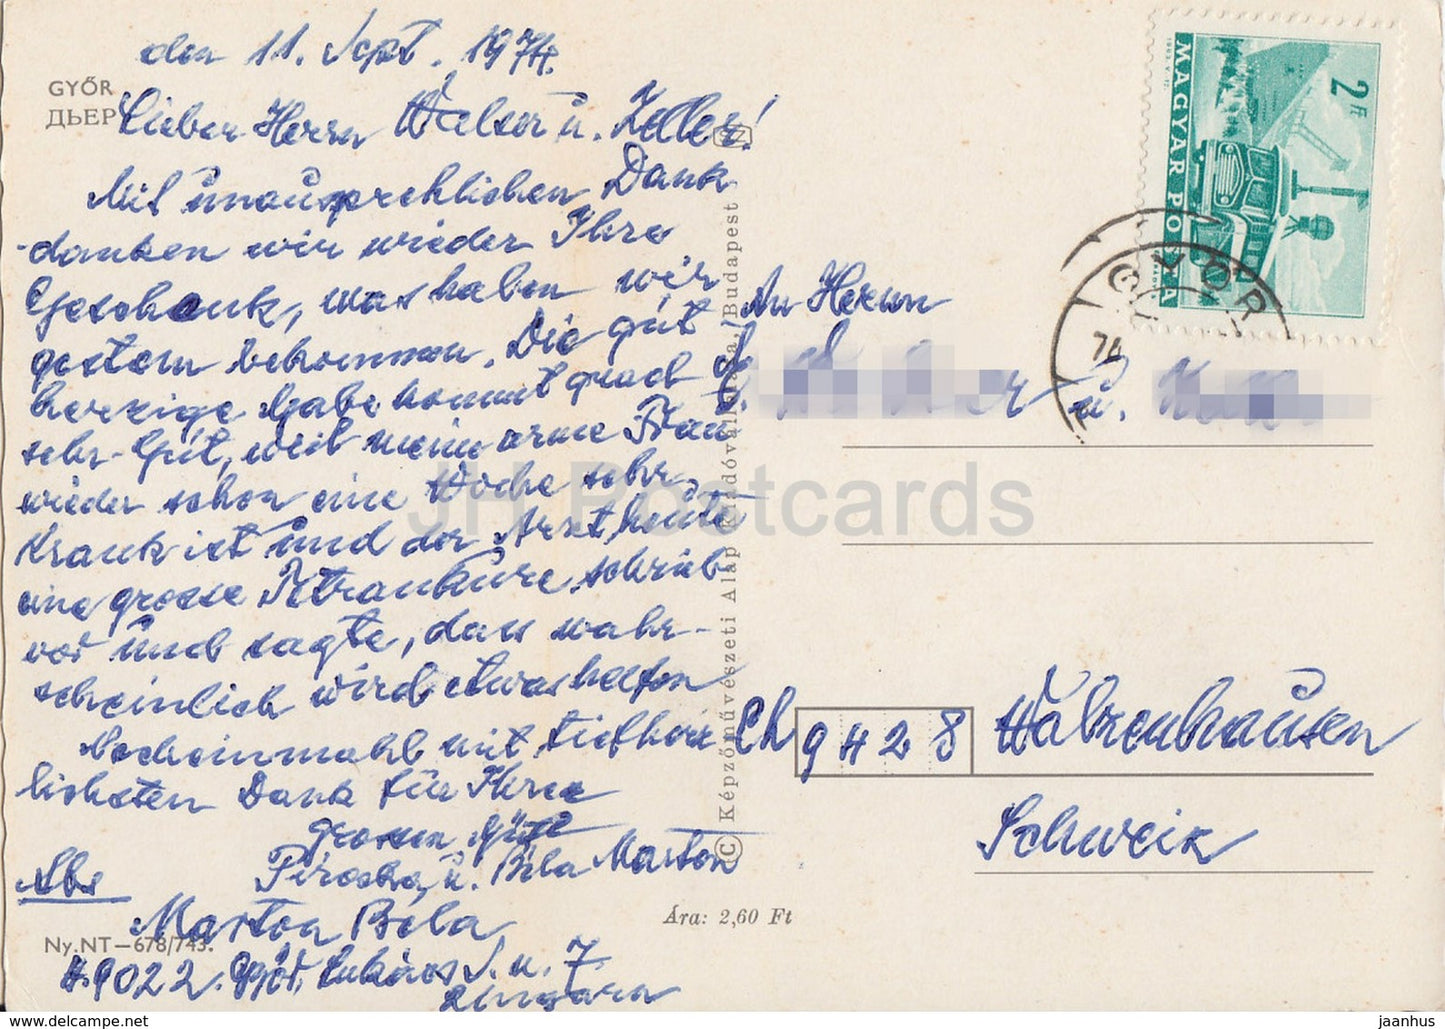 den 11. Sept. 1974.
GYŐR
ДЬЕР
Lieber Herrn Walser u. Zeller!
Mit unausprechlichen Dank
danken wir wieder Ihre
Geschenk, was haben wir
gestern bekommen. Die gut
herzige Gabe kommt grad
sehr Gut, weil meine arme Frau
wieder schon eine Woche sehr
Krank ist und der Arzt heute
eine grosse kure schrieb
vor und sagte, dass wahr-
scheinlich wird etwas helfen
Nocheinmahl mit tiefherz
lichsten Dank für Ihre
grossen Güte
Piroska u. Béla Marton
Abs
Marton Béla
H.9022. Győr, Lukács S. u. 7.
Ungarn
Ny.NT—678/743.
Ára: 2,60 Ft
© Képzőművészeti Alap Kiadóvállalata, Budapest
MAGYAR POSTA
2 Ft
GYŐR
74
An Herrn
u.
Ch 9428 Walzenhausen
Schweiz
JH Postcards
www.delcampe.net
jaanhus